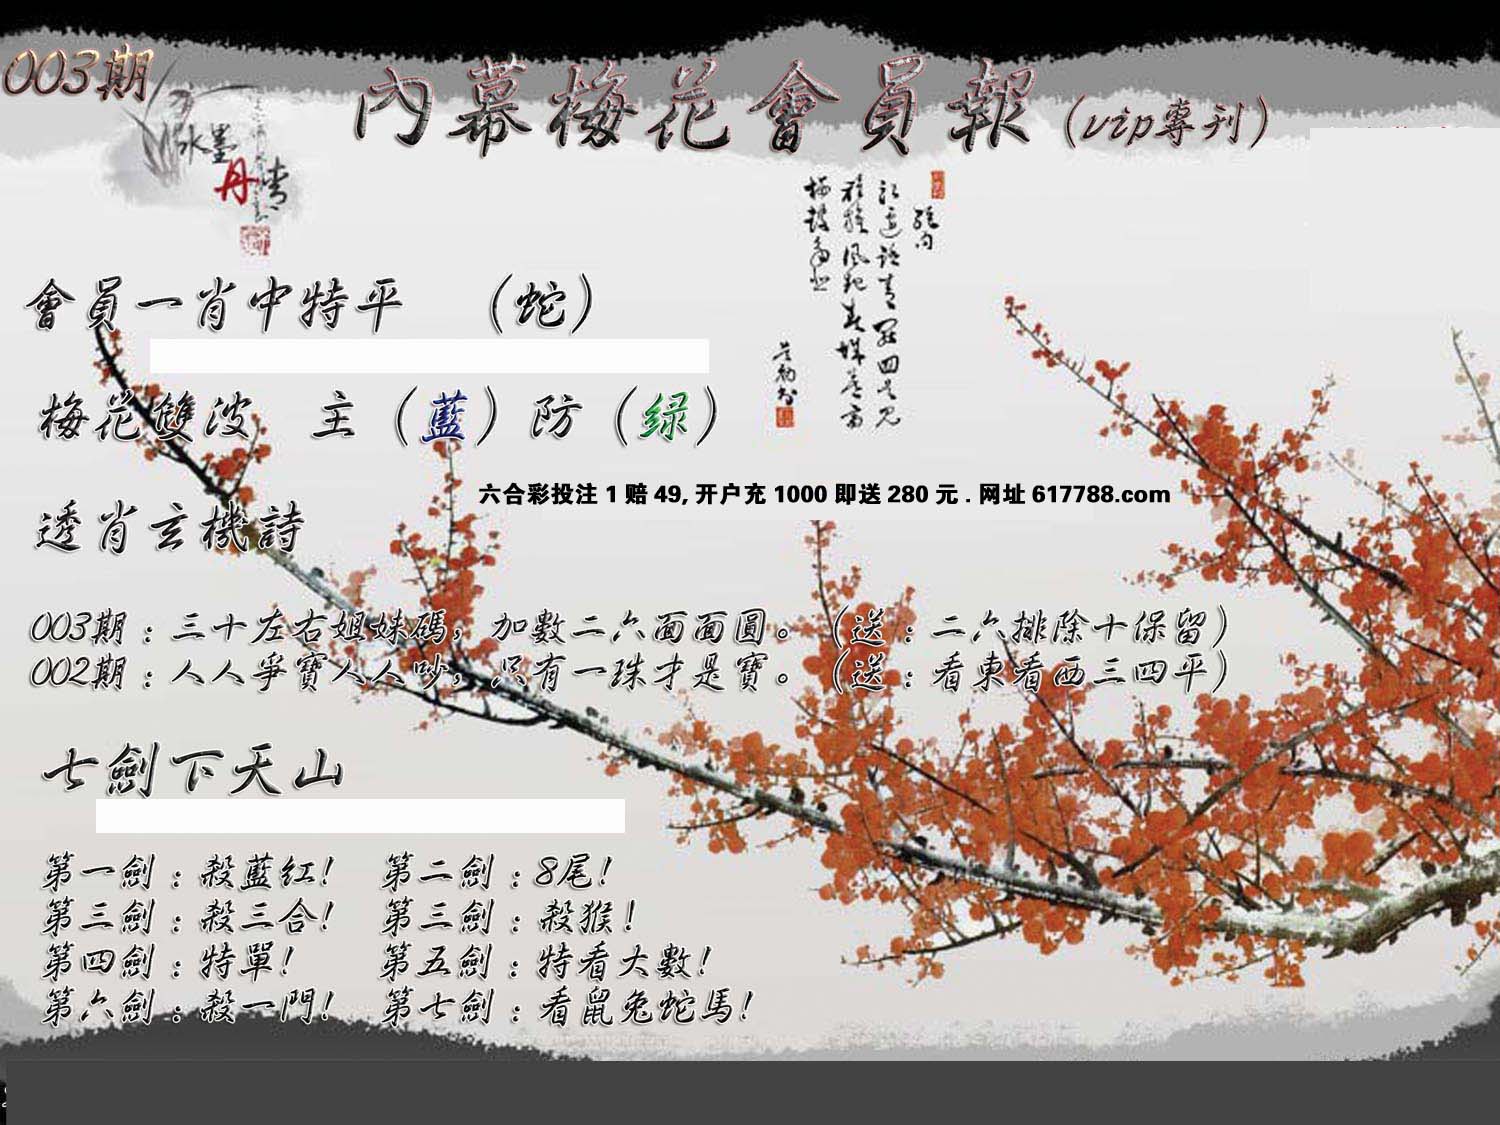 003期
內幕梅花會員報(vip專刊)
水墨
丹青
會員一肖中特平 (蛇)
梅花雙波 主(藍)防(绿)
六合彩投注1赔49,开户充1000即送280元.网址617788.com
透肖玄機詩
003期:三十左右姐妹碼,加數二六面面圓。(送:二六排除十保留)
002期:人人爭寶人人吵,只有一珠才是寶。(送:看東看西三四平)
七劍下天山
第一劍:殺藍红! 第二劍:8尾!
第三劍:殺三合! 第三劍:殺猴!
第四劍:特單! 第五劍:特看大數!
第六劍:殺一門! 第七劍:看鼠兔蛇馬!